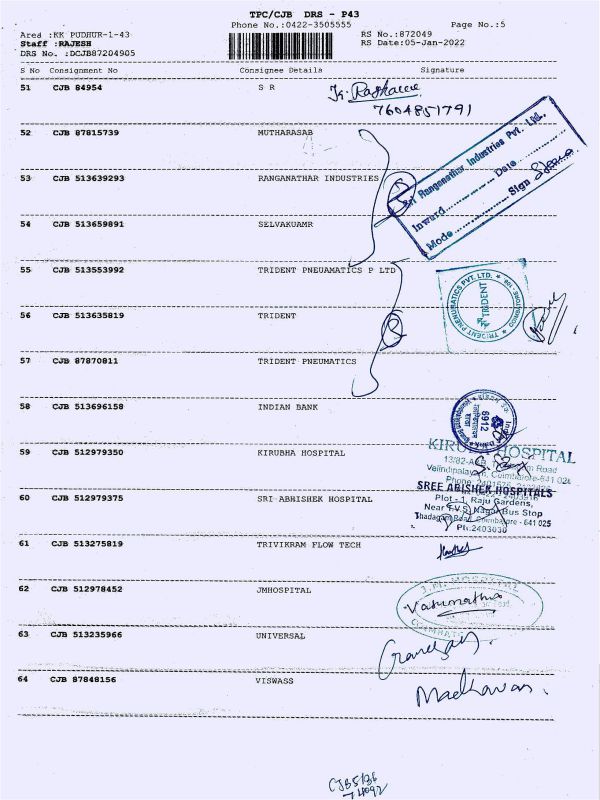 TPC/CJB DRS - P43
Phone No.:0422-3505555
Page No.:5
Area :KK PUDHUR-1-43
RS No.:872049
Staff :RAJESH
RS Date:05-Jan-2022
DRS No. :DCJB87204905
S No Consignment No Consignee Details Signature
51 CJB 84954 S R
7604851791
52 CJB 87815739 MUTHARASAB
53 CJB 513639293 RANGANATHAR INDUSTRIES
Sri Ranganathar Industries Pvt. Ltd.,
Inward Date
Mode Sign
54 CJB 513659891 SELVAKUAMR
55 CJB 513553992 TRIDENT PNEUAMATICS P LTD
TRIDENT PNEUMATICS PVT. LTD.
TRIDENT
56 CJB 513635819 TRIDENT
57 CJB 87870811 TRIDENT PNEUMATICS
58 CJB 513696158 INDIAN BANK
6912
59 CJB 512979350 KIRUBHA HOSPITAL
HOSPITAL
Road
Coimbatore-641
60 CJB 512979375 SRI ABHISHEK HOSPITAL
SREE ABISHEK HOSPITALS
Plot - 1, Raju Gardens,
Near T.V.S. Nagar Bus Stop
Thadagam Road, Coimbatore - 641 025
Ph:2403030
61 CJB 513275819 TRIVIKRAM FLOW TECH
62 CJB 512978452 JMHOSPITAL
J.M. HOSPITAL
63 CJB 513235966 UNIVERSAL
64 CJB 87848156 VISWASS
Madhavan.
CJB5136
74092